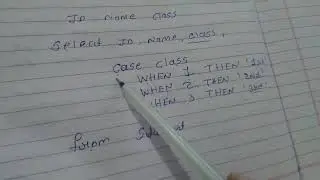 ID name class
Select ID, name, class,
case class
WHEN 1 THEN '1st'
WHEN 2 THEN '2nd'
HEN 3 THEN '3rd'
from